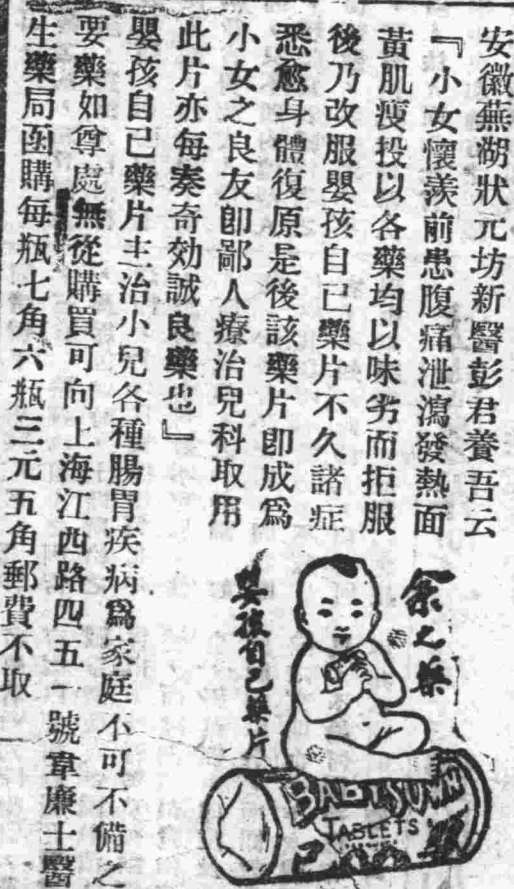 安徽蕪湖狀元坊新醫彭君養吾云
『小女懷羨前患腹痛泄瀉發熱面
黃肌瘦投以各藥均以味劣而拒服
後乃改服嬰孩自己藥片不久諸症
悉愈身體復原是後該藥片卽成爲
小女之良友卽鄙人療治兒科取用
此片亦每奏奇効誠良藥也』
嬰孩自己藥片主治小兒各種腸胃疾病爲家庭不可不備之
要藥如尊處無從購買可向上海江西路四五一號韋廉士醫
生藥局函購每瓶七角六瓶三元五角郵費不取
余之藥
嬰孩自己藥片
BABY'S OWN
TABLETS
己